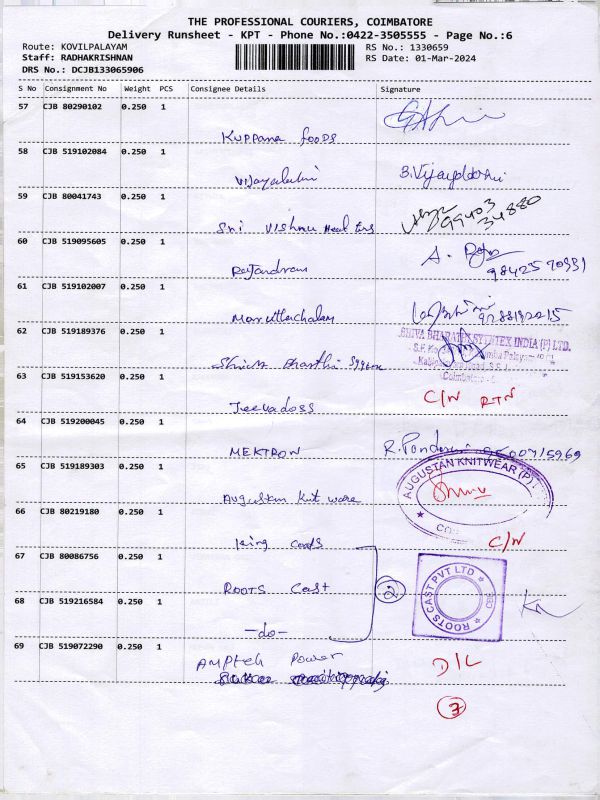 THE PROFESSIONAL COURIERS, COIMBATORE
Delivery Runsheet - KPT - Phone No.:0422-3505555 - Page No.:6
Route: KOVILPALAYAM
RS No.: 1330659
Staff: RADHAKRISHNAN
RS Date: 01-Mar-2024
DRS No.: DCJB133065906
S No Consignment No Weight PCS Consignee Details Signature
57 CJB 80290102 0.250 1
Kuppana foods
58 CJB 519102084 0.250 1
Vijayalakshmi
59 CJB 80041743 0.250 1
99403
34880
Sri Vishnu
60 CJB 519095605 0.250 1
A.
Rajandran
61 CJB 519102007 0.250 1
Maruthachalam
62 CJB 519189376 0.250 1
SHIVA BHARATEX SYNTEX INDIA (P) LTD.
Coimbatore
63 CJB 519153620 0.250 1
C/N RTN
Jeevadoss
64 CJB 519200045 0.250 1
MEKTRON
65 CJB 519189303 0.250 1
AUGUSTAN KNITWEAR (P)
Augustan knit ware
66 CJB 80219180 0.250 1
King
C/N
67 CJB 80086756 0.250 1
ROOTS Cast
2
ROOTS CAST PVT LTD
68 CJB 519216584 0.250 1
-do-
69 CJB 519072290 0.250 1
Amptek Power
D/L
7